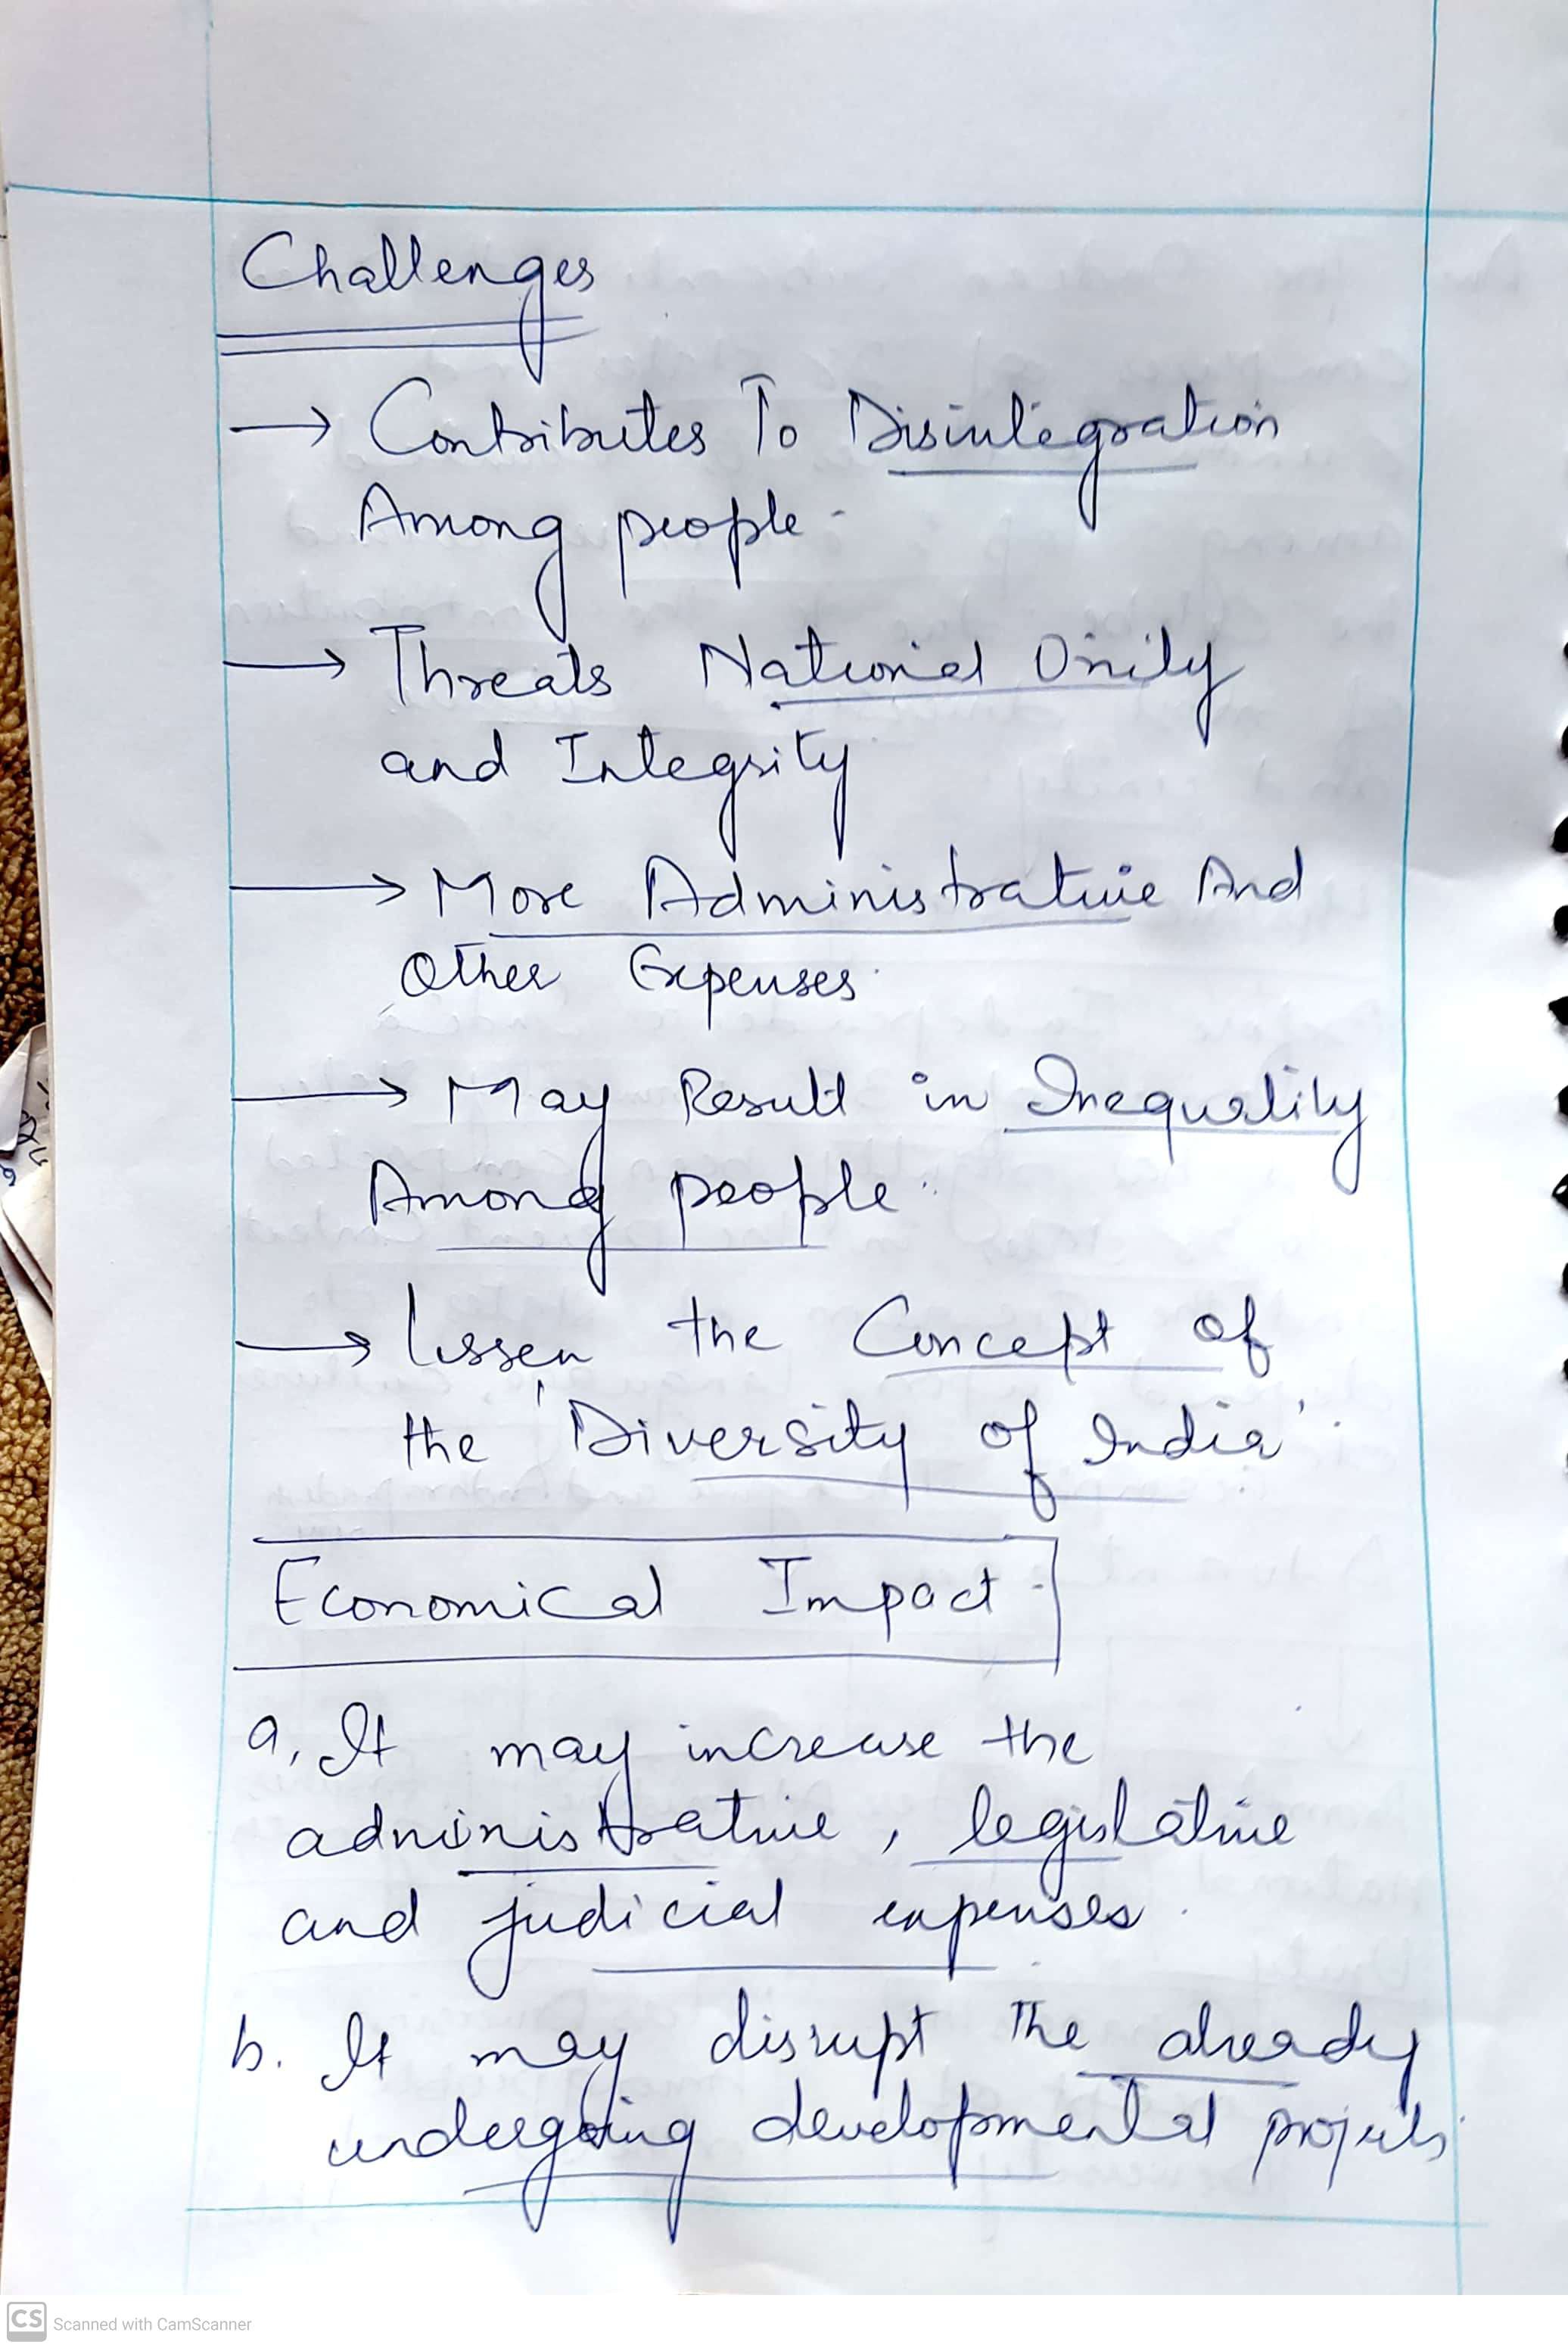 Challenges
→ Contributes To Disintegration
Among people.
→ Threats National Unity
and Integrity
→ More Administrative And
Other Expenses.
→ May Result in Inequality
Among people.
→ Lessen the Concept of
the 'Diversity of India'.
Economical Impact
a, It may increase the
administrative, legislative
and judicial expenses.
b. It may disrupt the already
undergoing developmental projects
CS Scanned with CamScanner